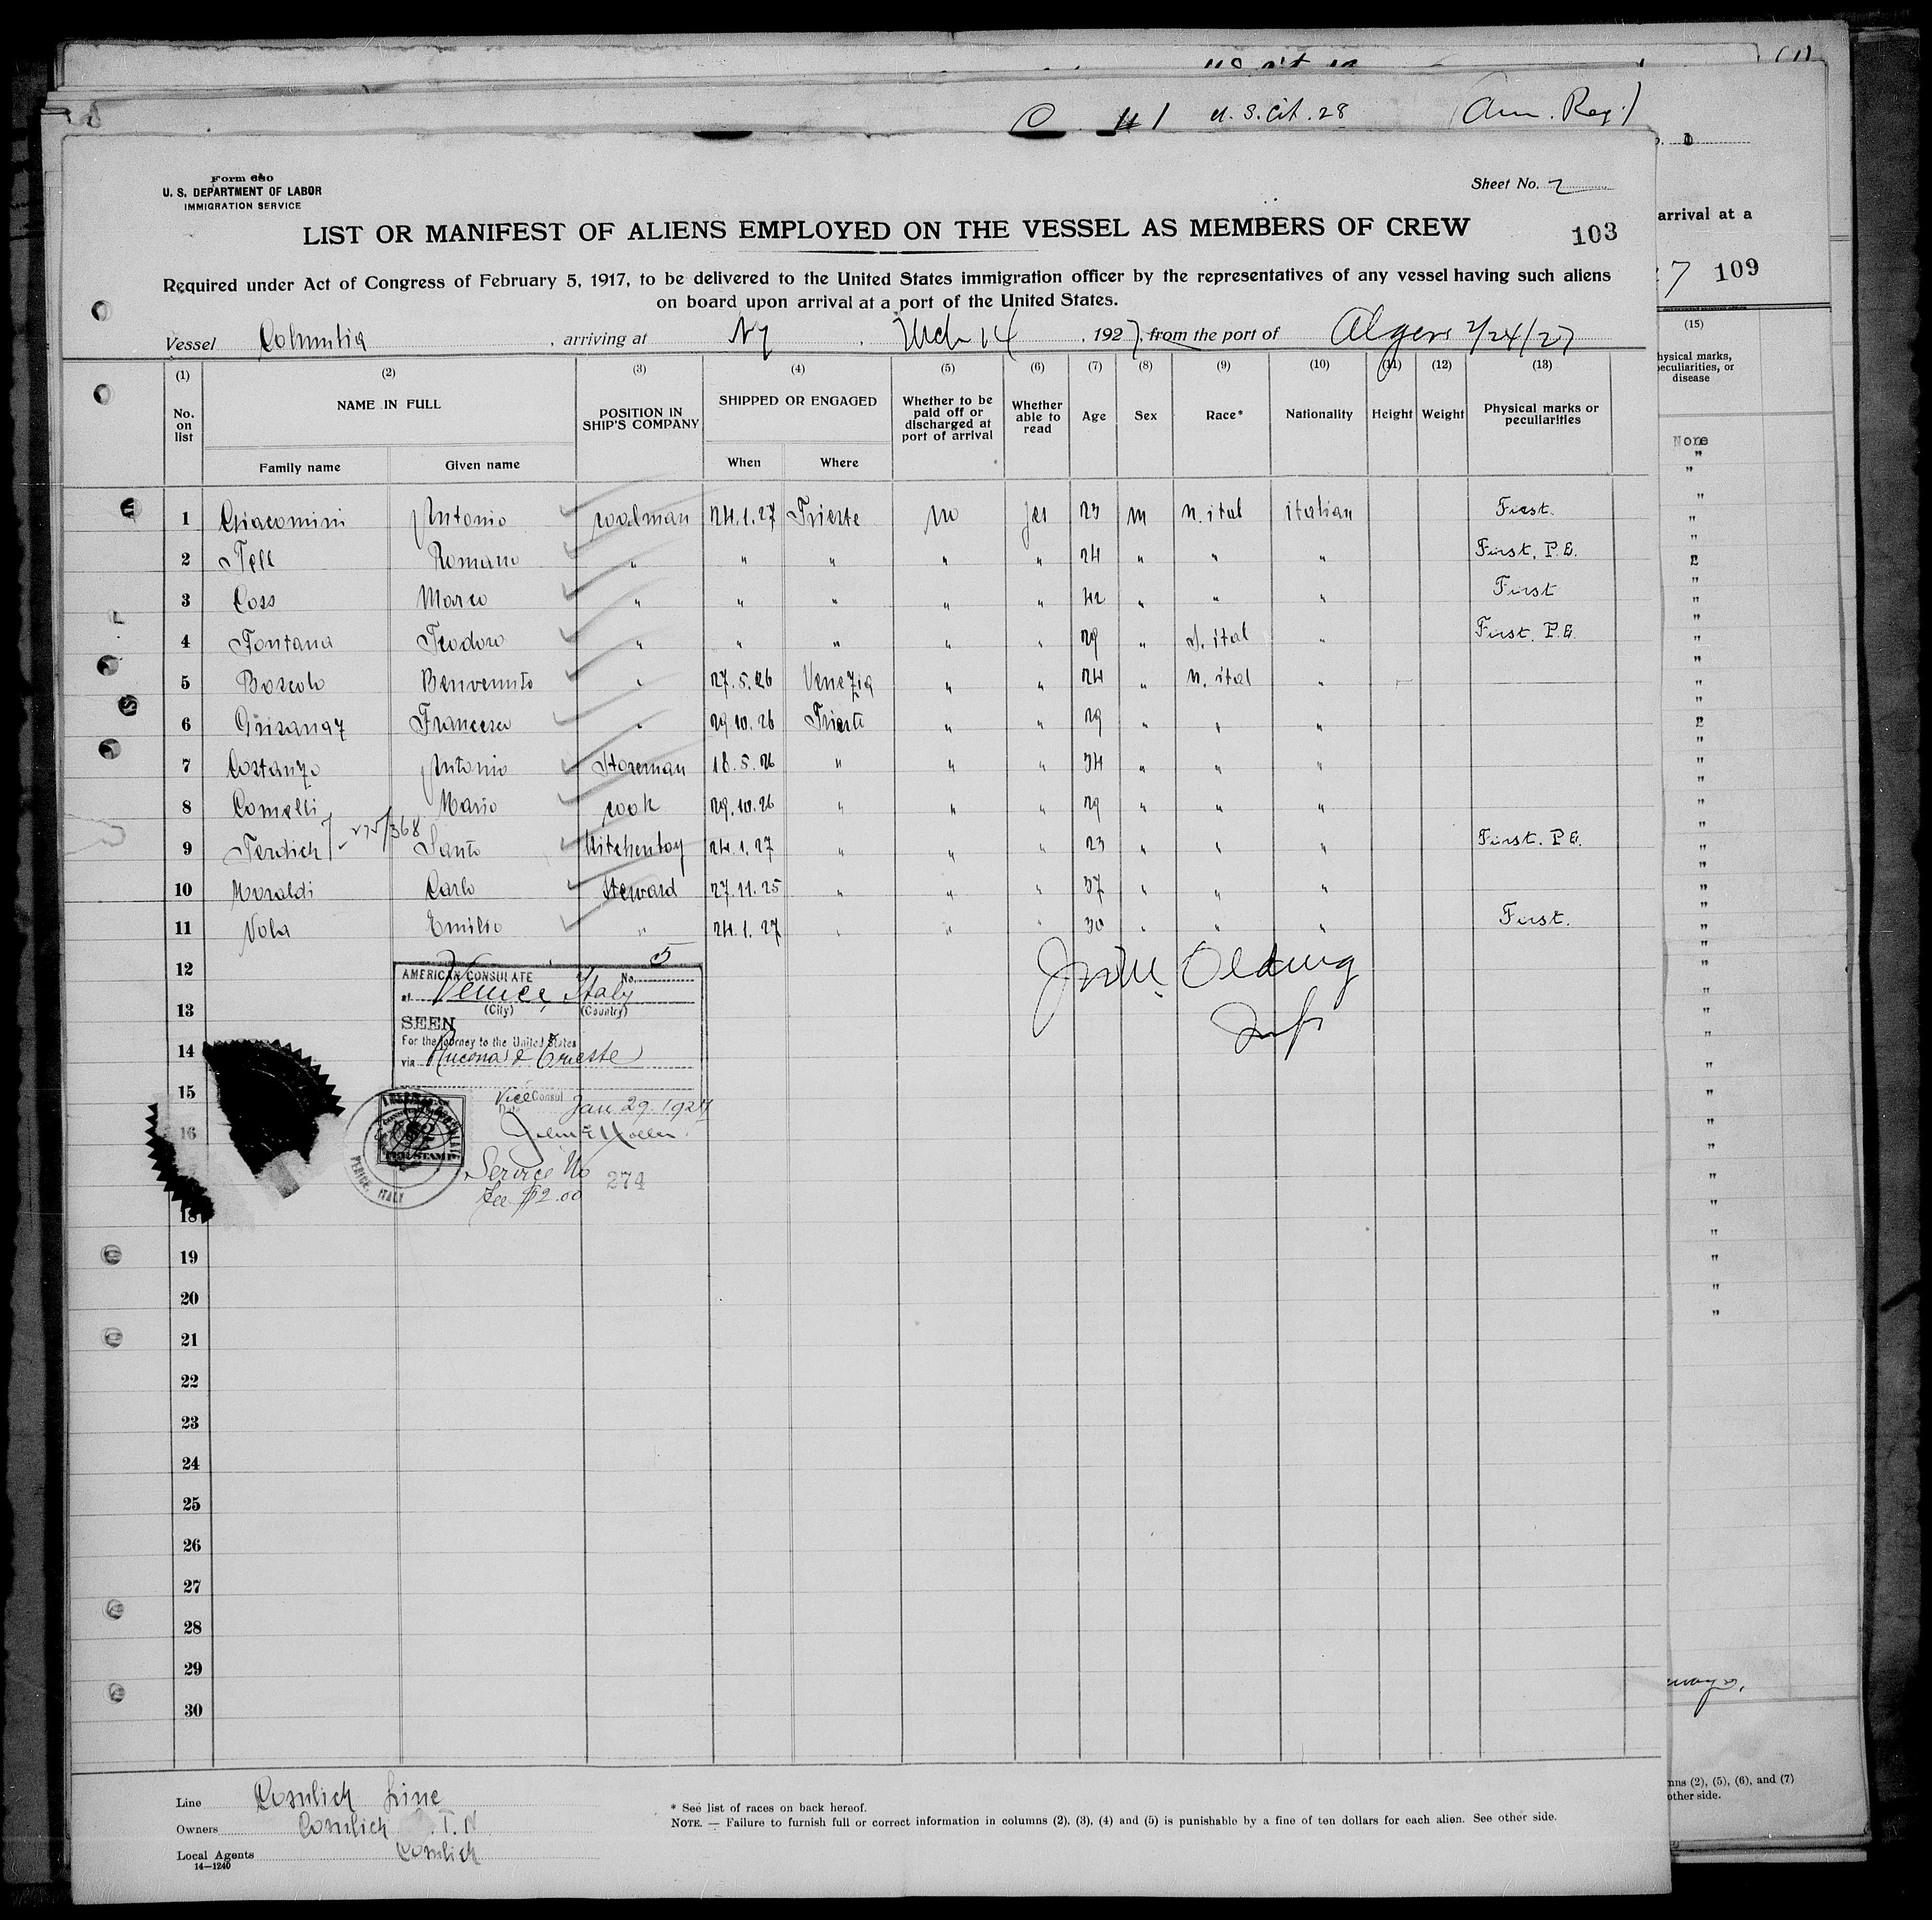 U.S. Cit. 28 (Am. Reg.)
Form 680
U. S. DEPARTMENT OF LABOR
IMMIGRATION SERVICE
Sheet No. 2
LIST OR MANIFEST OF ALIENS EMPLOYED ON THE VESSEL AS MEMBERS OF CREW
103
Required under Act of Congress of February 5, 1917, to be delivered to the United States immigration officer by the representatives of any vessel having such aliens
on board upon arrival at a port of the United States.
Vessel Columbia, arriving at NY, Mch 14, 1927, from the port of Algers 2/24/27
(1) (2) (3) (4) (5) (6) (7) (8) (9) (10) (11) (12) (13)
No. on list NAME IN FULL POSITION IN SHIP'S COMPANY SHIPPED OR ENGAGED Whether to be paid off or discharged at port of arrival Whether able to read Age Sex Race* Nationality Height Weight Physical marks or peculiarities
Family name Given name When Where
1 Giacomini Antonio coalman 24.1.27 Trieste no yes 23 m n. ital italian First.
2 Tell Romano " " " " " 24 " " " First. P.E.
3 Coss Marco " " " " " 42 " " " First
4 Fontana Teodoro " " " " " 29 " S. ital " First. P.E.
5 Boscolo Benvenuto " 27.5.26 Venezia " " 24 " n. ital "
6 Grisanaz Francesco " 29.10.26 Trieste " " 29 " " "
7 Costanzo Antonio Storeman 18.5.26 " " " 34 " " "
8 Comelli Mario cook 29.10.26 " " " 29 " " "
9 Terdich 275/368 Santo Kitchenboy 24.1.27 " " " 23 " " " First. P.E.
10 Moraldi Carlo Steward 27.11.25 " " " 37 " " "
11 Vola Emilio " 24.1.27 " " " 30 " " " First.
12
13
14
15
16
18
19
20
21
22
23
24
25
26
27
28
29
30
AMERICAN CONSULATE No. 5
at Venice, Italy
(City) (Country)
SEEN
For the journey to the United States
via Ancona & Trieste
Vice Consul
Date Jan 29. 1927
Service No 274
Fee $2.00
VENICE, ITALY
Line Cosulich Line
Owners Cosulich S.T.N.
Local Agents Cosulich
14—1240
* See list of races on back hereof.
NOTE. — Failure to furnish full or correct information in columns (2), (3), (4) and (5) is punishable by a fine of ten dollars for each alien. See other side.
arrival at a
7 109
(15)
hysical marks,
eculiarities, or
disease
None
mns (2), (5), (6), and (7)
other side.